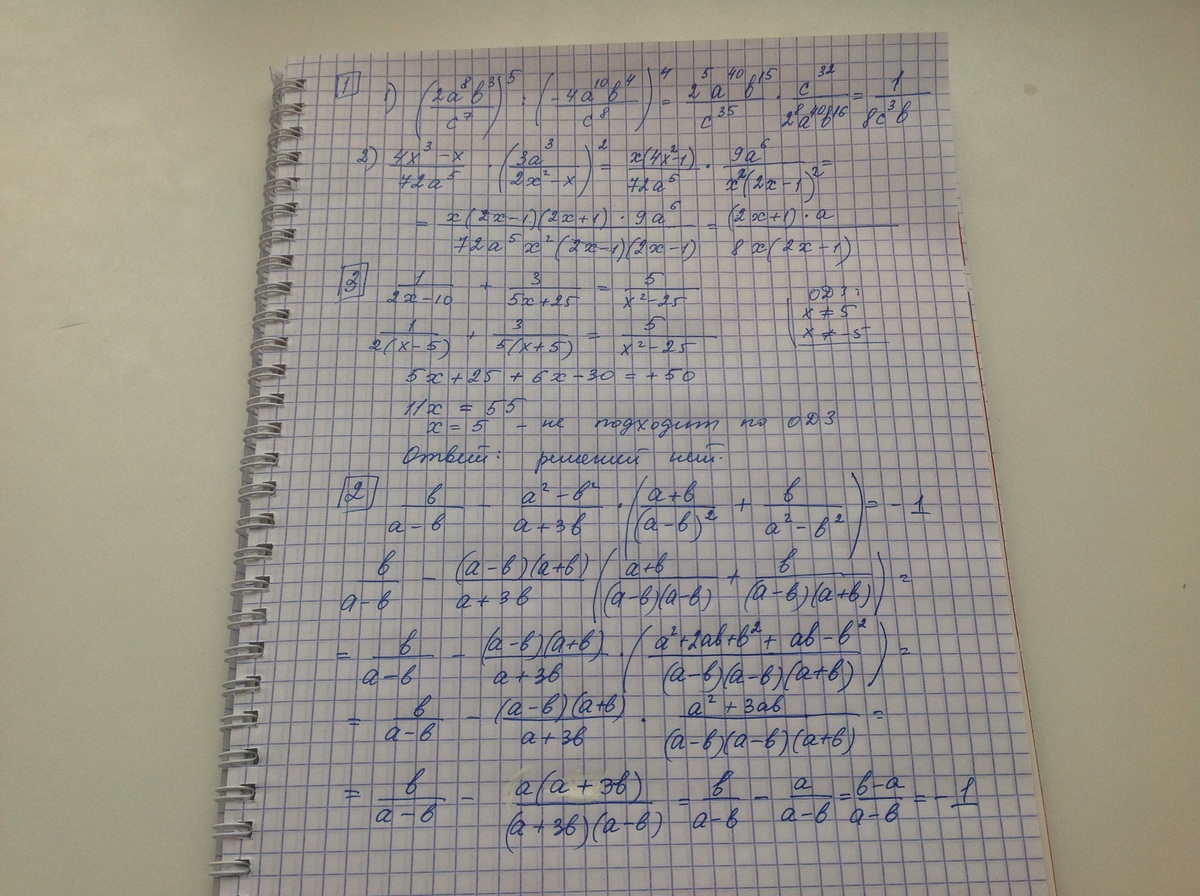 1 1) (2a⁸в³/c⁷)⁵ : (-4a¹⁰в⁴/c⁸)⁴ = 2⁵a⁴⁰в¹⁵/c³⁵ · c³²/2⁸a⁴⁰в¹⁶ = 1/8c³в
2) 4x³-x/72a⁵ · (3a³/2x²-x)² = x(4x²-1)/72a⁵ · 9a⁶/x²(2x-1)² =
= x(2x-1)(2x+1) · 9a⁶/72a⁵x²(2x-1)(2x-1) = (2x+1)·a/8x(2x-1)
3 1/2x-10 + 3/5x+25 = 5/x²-25
ОДЗ:
x ≠ 5
x ≠ -5
1/2(x-5) + 3/5(x+5) = 5/x²-25
5x+25 + 6x-30 = +50
11x = 55
x = 5 - не подходит по ОДЗ
Ответ: решений нет.
2 в/a-в - a²-в²/a+3в · (a+в/(a-в)² + в/a²-в²) = -1
в/a-в - (a-в)(a+в)/a+3в (a+в/(a-в)(a-в) + в/(a-в)(a+в)) =
= в/a-в - (a-в)(a+в)/a+3в · (a²+2aв+в²+aв-в²/(a-в)(a-в)(a+в)) =
= в/a-в - (a-в)(a+в)/a+3в · a²+3aв/(a-в)(a-в)(a+в) =
= в/a-в - a(a+3в)/(a+3в)(a-в) = в/a-в - a/a-в = в-a/a-в = -1